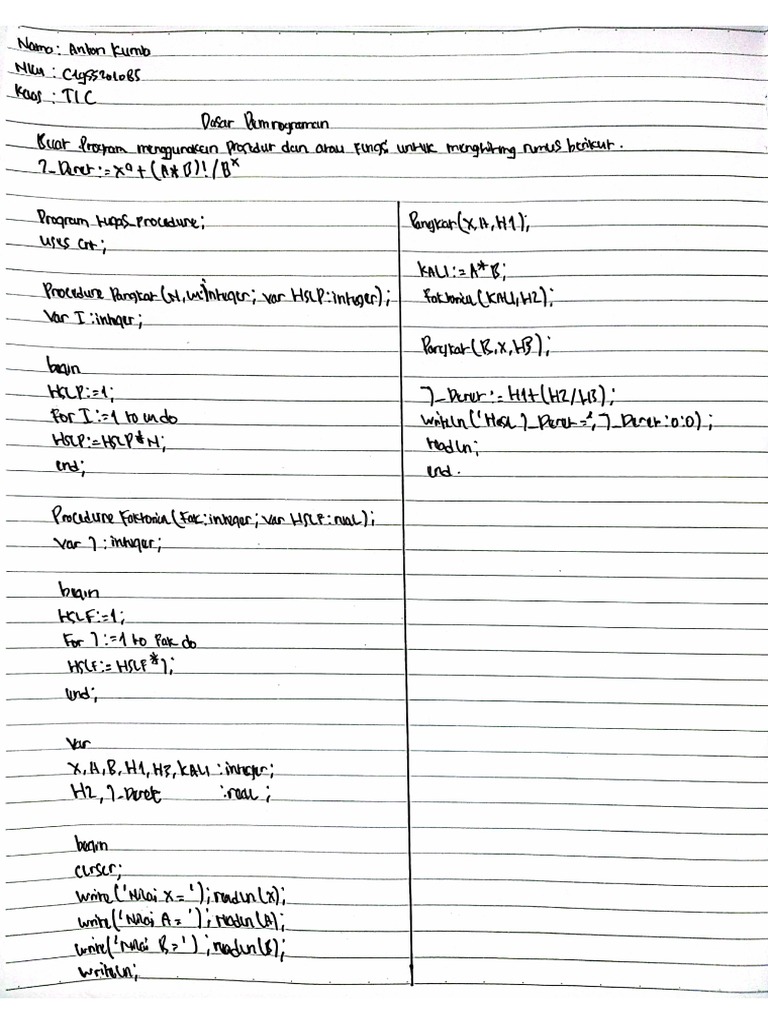 Nama : Anton Kumb
NIM : C1955201085
Kelas : TI C
Dasar Pemrograman
Buat Program menggunakan Prosedur dan atau Fungsi untuk menghitung rumus berikut.
J_Deret := X^A + (A*B)! / B^X
Program tugas_procedure;
uses crt;
Procedure Pangkat (N, M:integer; var HSLP:integer);
Var I : integer;
begin
HSLP:=1;
For I:=1 to M do
HSLP:=HSLP*N;
end;
Procedure Faktorial (Fak:integer; var HSLF:real);
Var J : integer;
begin
HSLF:=1;
For J:=1 to Fak do
HSLF:= HSLF*J;
end;
Var
X, A, B, H1, H3, KALI : integer;
H2, J_Deret :real ;
begin
clrscr;
write('Nilai X = '); readln(X);
write('Nilai A = '); readln(A);
write('Nilai B = ') ; readln(B);
writeln;
Pangkat (X, A, H1);
KALI := A*B;
Faktorial (KALI, H2);
Pangkat (B, X, H3);
J_Deret := H1+(H2/H3);
writeln ('Hasil J_Deret = ', J_Deret :0:0) ;
readln;
end.